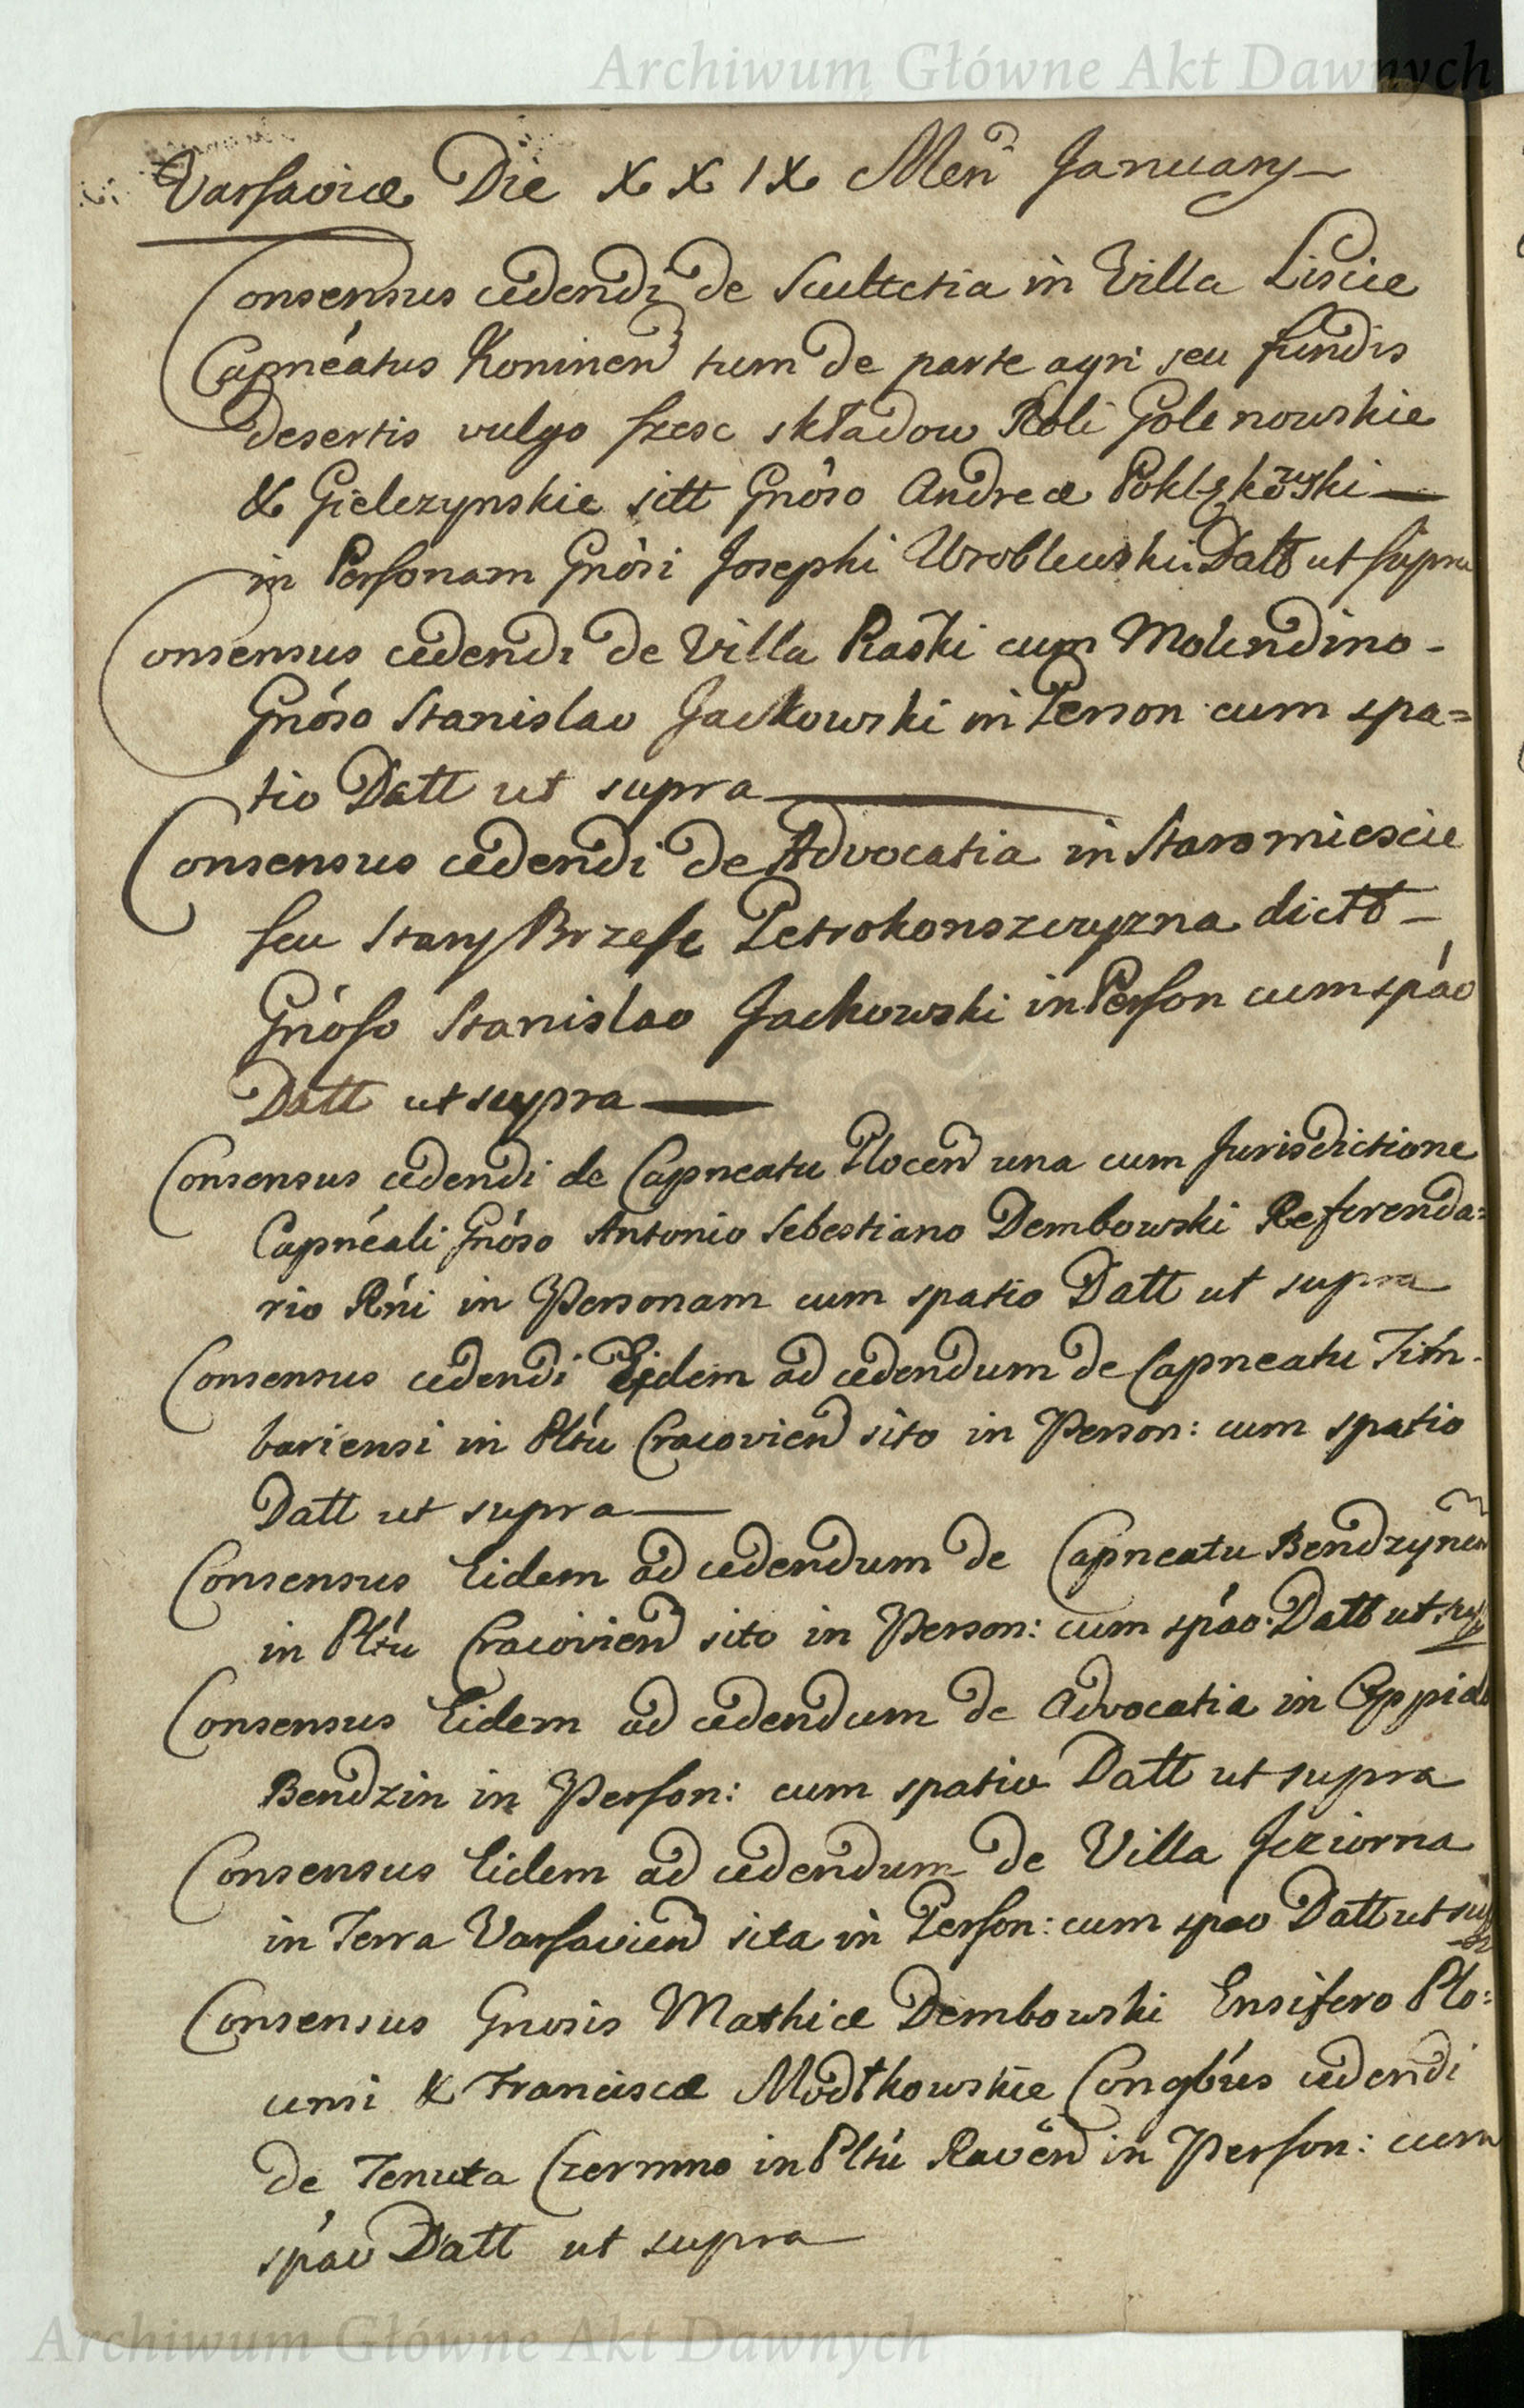 Archiwum Główne Akt Dawnych
Varsaviæ Die XXIX Men January
Consensus cedendi de Scultetia in Villa Liscie
Capnéatus Koninen tum de parte agri seu fundis
desertis vulgo szesc składow Roli Golenowskie
& Gielczynskie sitt Gnóso Andreæ
in Personam Gnósi Josephi Wroblewski Datt ut supra
Consensus cedendi de Villa Raśki cum Molendino -
Gnóso Stanislao Jackowski in Person cum spa=
tio Datt ut supra
Consensus cedendi de Advocatia in Staromiescie
seu Stary Brzesc Petrokonszczyzna dictt -
Gnóso Stanislao Jackowski in Person cum spáo
Datt ut supra
Consensus cedendi de Capneatu Plocen una cum Jurisdictione
Capnéali Gnóso Antonio Sebestiano Dembowski Referenda=
rio Rńi in Personam cum spatio Datt ut supra
Consensus cedendi Eidem ad cedendum de Capneatu
bariensi in Pltú Cracovien sito in Person: cum spatio
Datt ut supra
Consensus Eidem ad cedendum de Capneatu Bendzynen
in Pltú Cracovien sito in Person: cum spáo Datt ut sup
Consensus Eidem ad cedendum de Advocatia in Oppido
Bendzin in Person: cum spatio Datt ut supra
Consensus Eidem ad cedendum de Villa Jeziorna
in Terra Varsavien sita in Person: cum spao Datt ut sup
Consensus Gnosis Mathiæ Dembowski Ensifero Plo:
censi & Franciscæ Modtkowskie Congbús cedendi
de Tenuta Czermno in Pltú Raven in Person: cum
spáo Datt ut supra
Archiwum Główne Akt Dawnych